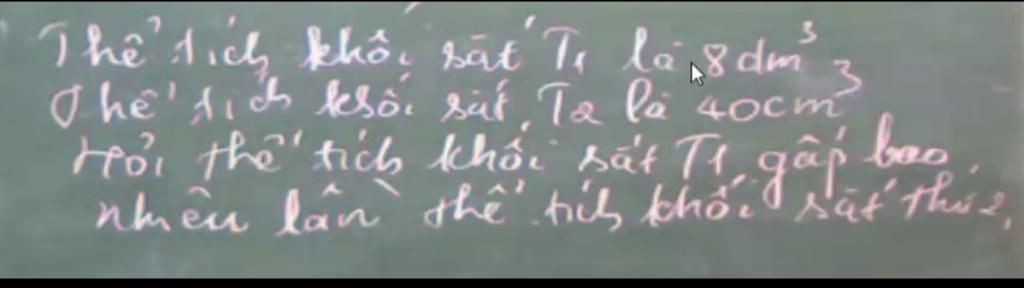 Thể tích khối sắt T1 là 8dm³
Thể tích khối sắt T2 là 40cm³
Hỏi thể tích khối sắt T1 gấp bao
nhiêu lần thể tích khối sắt thứ 2.